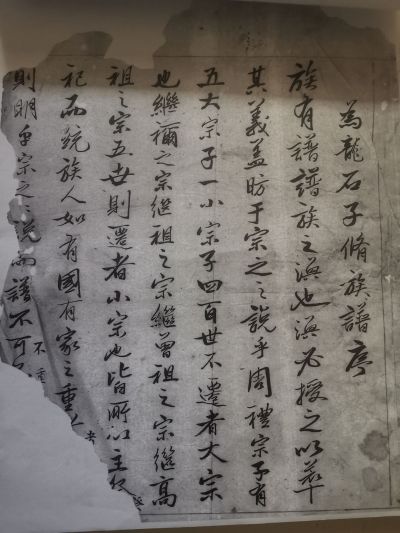 為龍石子脩族譜序
族有譜譜族之演也演必授之以萃
其義蓋昉于宗之之說乎周禮宗子有
五大宗子一小宗子四百世不遷者大宗
也繼禰之宗繼祖之宗繼曾祖之宗繼高
祖之宗五世則遷者小宗也皆所以主
祀而統族人如有國有家之重
則明乎宗之說而譜不可